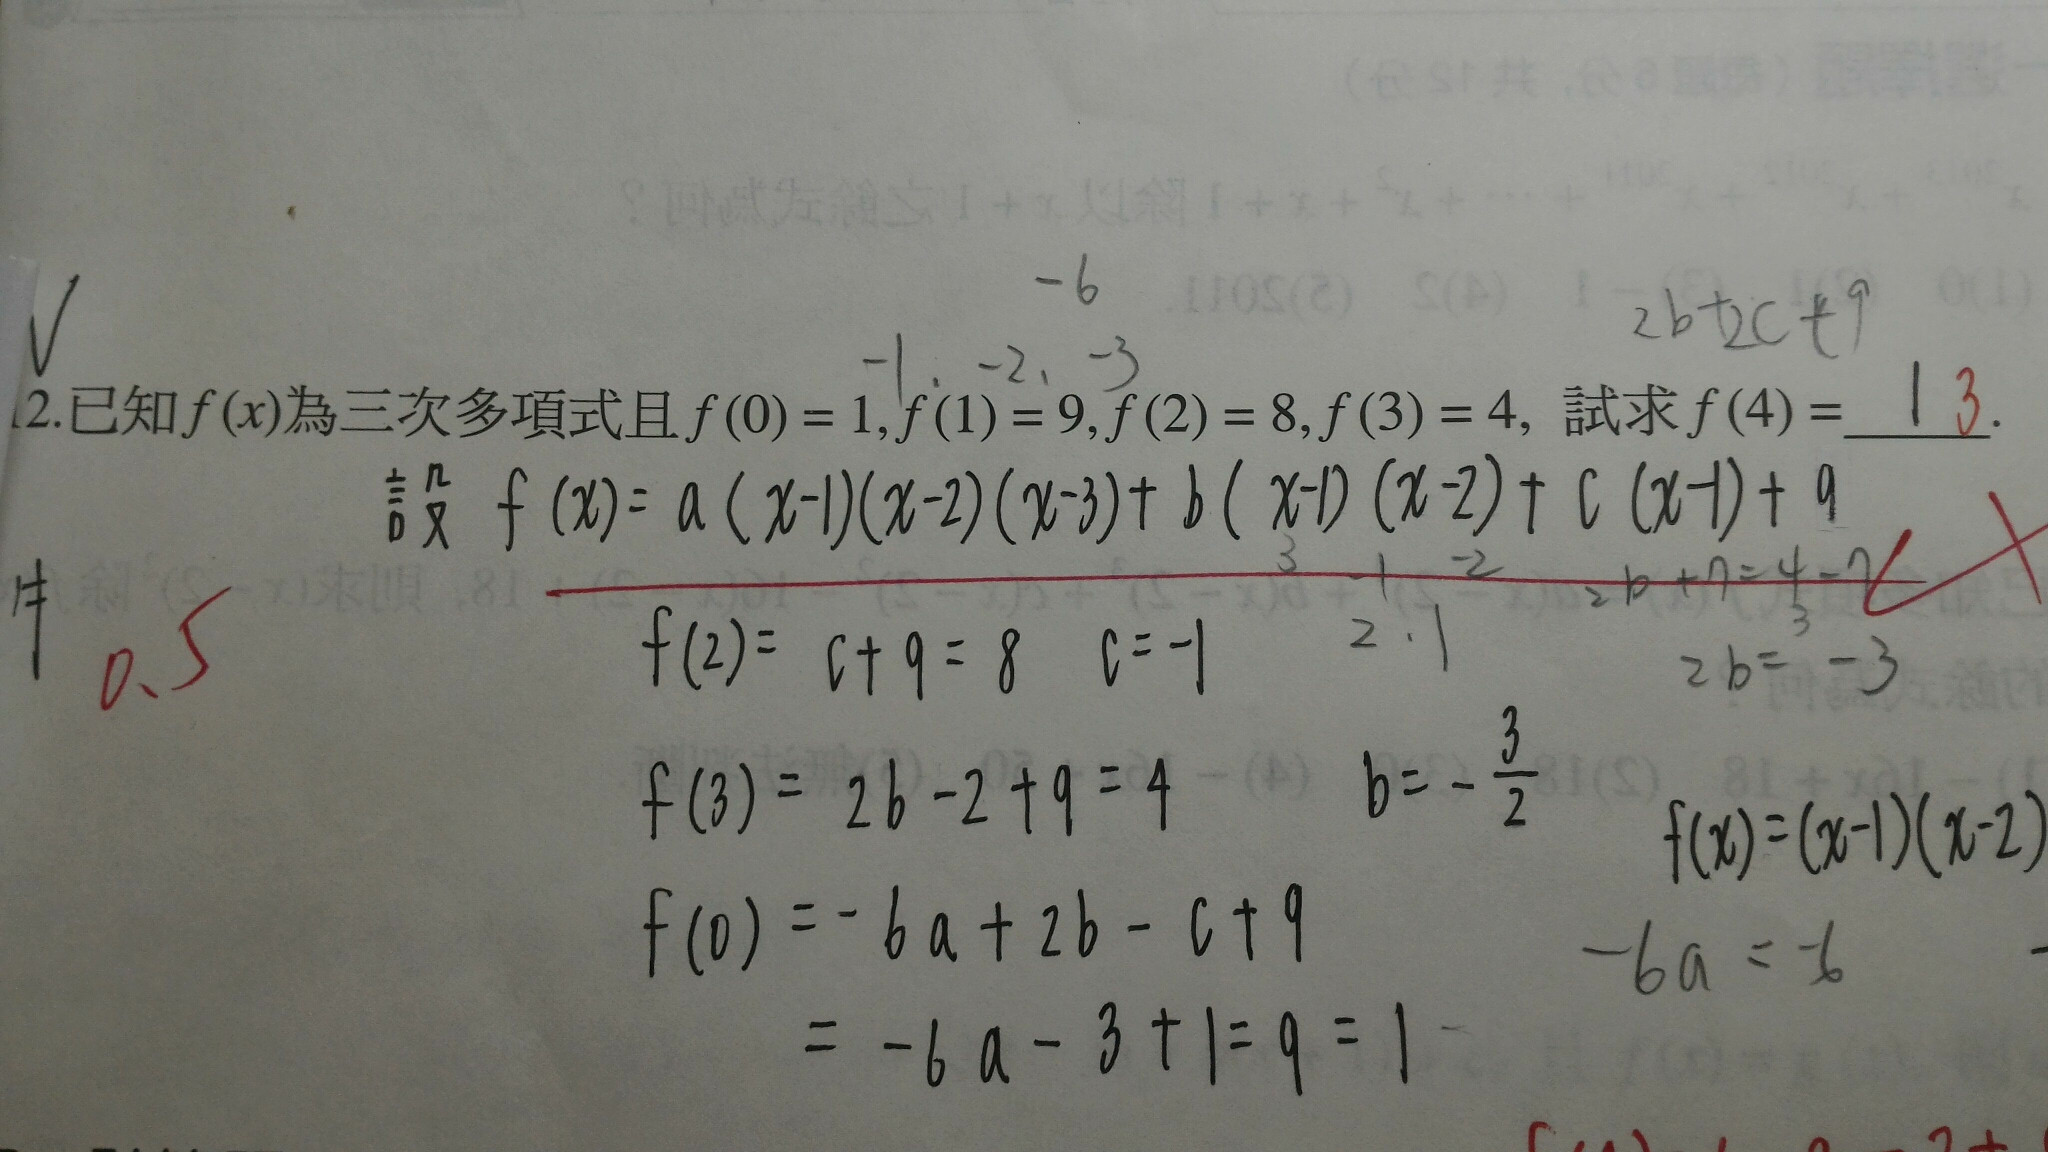 -6
2b+2c+9
-1. -2、 -3
2.已知f(x)為三次多項式且f(0)=1,f(1)=9,f(2)=8,f(3)=4, 試求f(4)=13.
設 f(x)=a(x-1)(x-2)(x-3)+b(x-1)(x-2)+c(x-1)+9
3 -1 -2 2b+7=4-7
0.5 f(2)=c+9=8 c=-1 2.1 3
2b=-3
f(3)=2b-2+9=4 b=-3/2
f(x)=(x-1)(x-2)
f(0)=-6a+2b-c+9
-6a=-6
=-6a-3+1=9=1